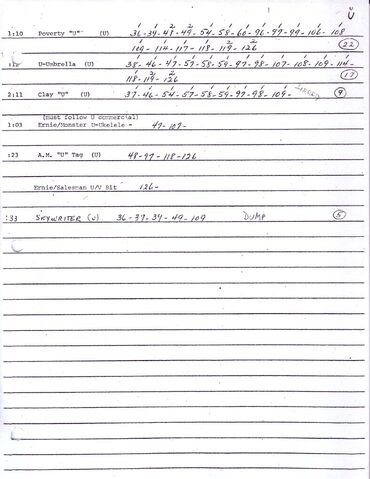 U
1:10 Poverty "U" (U) 36-39-48-49-54-58-60-96-97-99-106-108
109-114-117-118-119-126 22
U-Umbrella (U) 38-46-47-57-58-59-97-98-107-108-109-114-
118-119-126 17
2:11 Clay "U" (U) 37-46-54-57-58-59-97-98-109- 9
(must follow U commercial)
1:03 Ernie/Monster U-Ukelele - 47-107-
:23 A.M. "U" Tag (U) 48-97-118-126
Ernie/Salesman U/V Bit 126-
:33 SKYWRITER (U) 36-37-39-49-109 DUMP 5